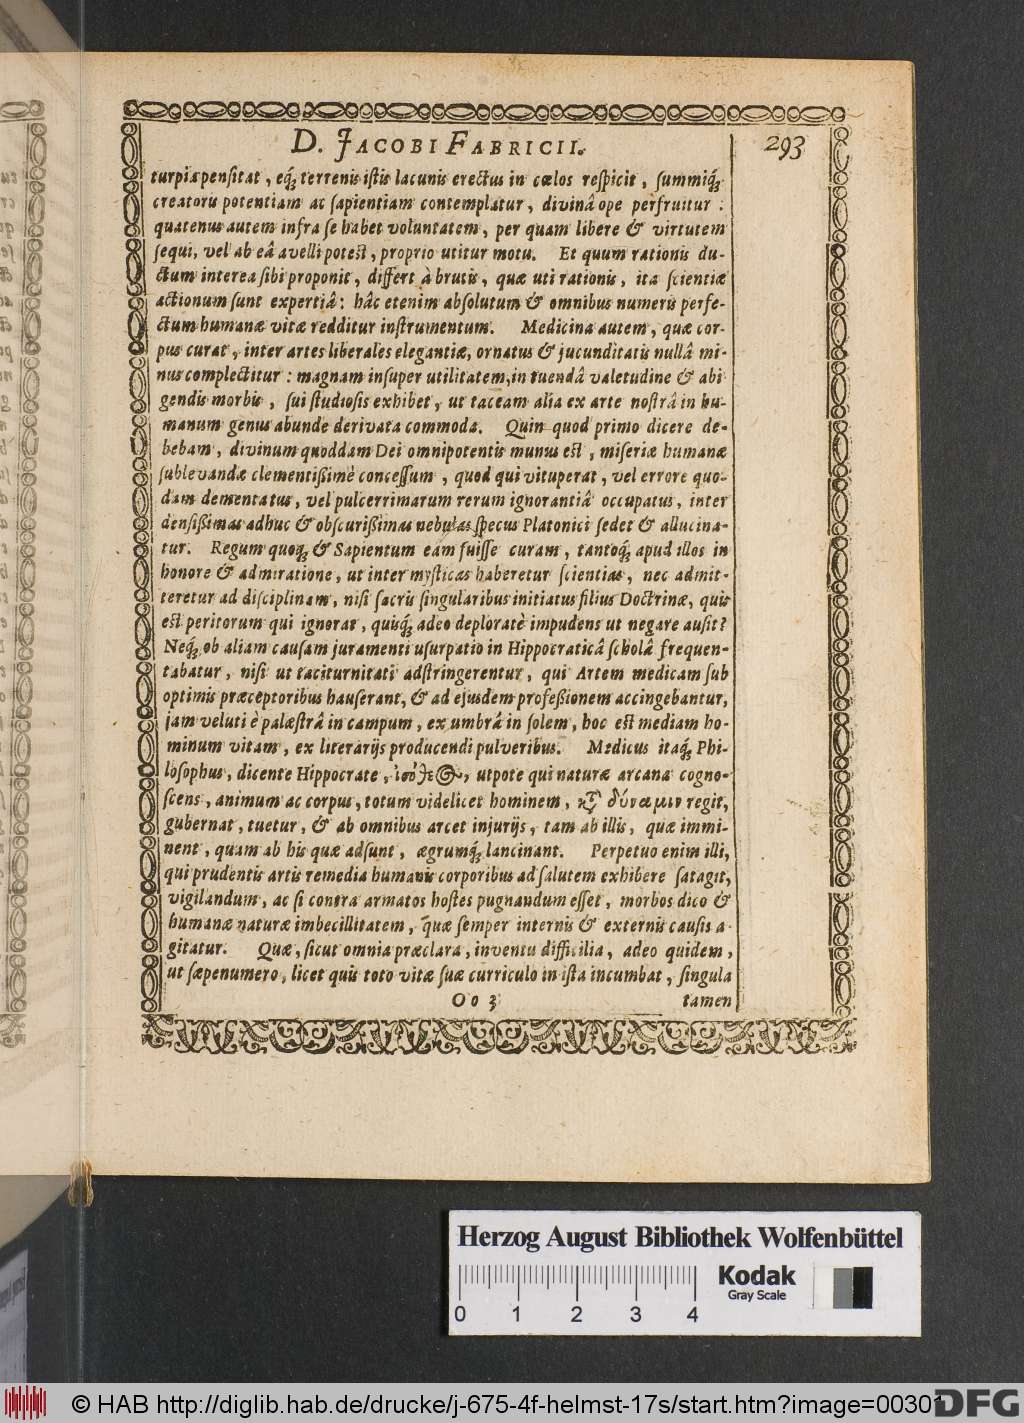 D. JACOBI FABRICII.
293
turpia pensitat, eq́; terrenis istis lacunis erectus in cœlos respicit, summiq́;
creatoris potentiam ac sapientiam contemplatur, divinâ ope perfruitur:
quatenus autem infra se habet voluntatem, per quam libere & virtutem
sequi, vel ab eâ avelli potest, proprio utitur motu. Et quum rationis du-
ctum interea sibi proponit, differt à brutis, quæ uti rationis, ita scientiæ
actionum sunt expertiâ: hâc etenim absolutum & omnibus numeris perfe-
ctum humanæ vitæ redditur instrumentum. Medicina autem, quæ cor-
pus curat, inter artes liberales elegantiæ, ornatus & jucunditatis nullâ mi-
nus complectitur: magnam insuper utilitatem, in tuendâ valetudine & abi
gendis morbis, sui studiosis exhibet, ut taceam alia ex arte nostrâ in hu-
manum genus abunde derivata commoda. Quin quod primo dicere de-
bebam, divinum quoddam Dei omnipotentis munus est, miseriæ humanæ
sublevandæ clementißimè concessum, quod qui vituperat, vel errore quo-
dam dementatus, vel pulcerrimarum rerum ignorantiâ occupatus, inter
densißimas adhuc & obscurißimas nebulas specus Platonici sedet & allucina-
tur. Regum quoq́; & Sapientum eam fuisse curam, tantoq́; apud illos in
honore & admiratione, ut inter mysticas haberetur scientias, nec admit-
teretur ad disciplinam, nisi sacris singularibus initiatus filius Doctrinæ, quis
est peritorum qui ignorat, quisq́; adeo deploratè impudens ut negare ausit?
Neq́; ob aliam causam juramenti usurpatio in Hippocraticâ scholâ frequen-
tabatur, nisi ut taciturnitati adstringerentur, qui Artem medicam sub
optimis præceptoribus hauserant, & ad ejusdem profeßionem accingebantur,
jam veluti è palæstrâ in campum, ex umbrâ in solem, hoc est mediam ho-
minum vitam, ex literarijs producendi pulveribus. Medicus itaq́; Phi-
losophus, dicente Hippocrate, ἰσόθεος, utpote qui naturæ arcana cogno-
scens, animum ac corpus, totum videlicet hominem, κτ̃ δύναμιν regit,
gubernat, tuetur, & ab omnibus arcet injurijs, tam ab illis, quæ immi-
nent, quam ab his quæ adsunt, ægrumq́; lancinant. Perpetuo enim illi,
qui prudentis artis remedia humanis corporibus ad salutem exhibere satagit,
vigilandum, ac si contra armatos hostes pugnandum esset, morbos dico &
humanæ naturæ imbecillitatem, quæ semper internis & externis causis a-
gitatur. Quæ, sicut omnia præclara, inventu difficilia, adeo quidem,
ut sæpenumero, licet quis toto vitæ suæ curriculo in ista incumbat, singula
Oo 3 tamen
Herzog August Bibliothek Wolfenbüttel
Kodak
Gray Scale
0 1 2 3 4
© HAB http://diglib.hab.de/drucke/j-675-4f-helmst-17s/start.htm?image=00301
DFG